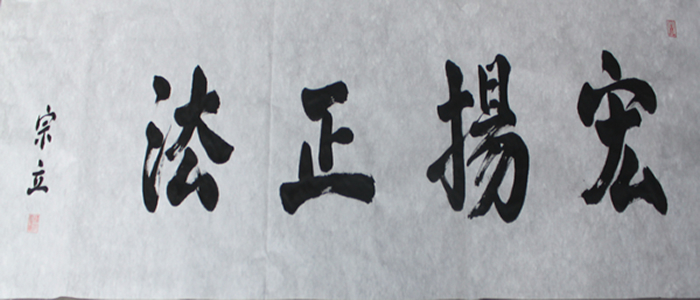 宏揚正法
宗立